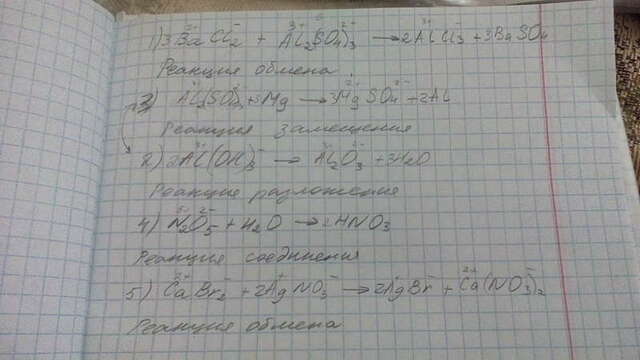 1) 3BaCl₂ + Al₂(SO₄)₃ → 2AlCl₃ + 3BaSO₄
Реакция обмена
3) Al₂(SO₄)₃ + 3Mg → 3MgSO₄ + 2Al
Реакция замещения
2) 2Al(OH)₃ → Al₂O₃ + 3H₂O
Реакция разложения
4) N₂O₅ + H₂O → 2HNO₃
Реакция соединения
5) CaBr₂ + 2AgNO₃ → 2AgBr + Ca(NO₃)₂
Реакция обмена